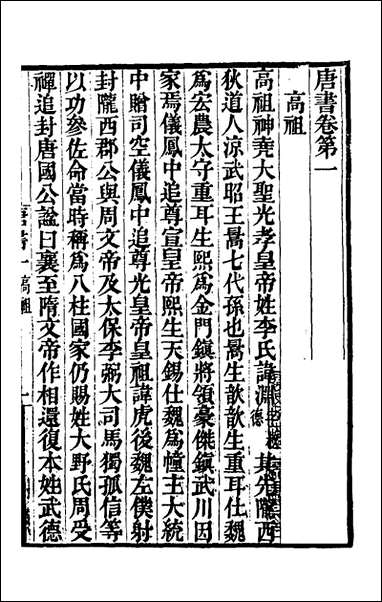 唐書卷第一
高祖
高祖神堯大聖光孝皇帝姓李氏諱淵 其先隴西
狄道人涼武昭王暠七代孫也暠生歆歆生重耳仕魏
爲宏農太守重耳生熙爲金門鎮將領豪傑鎮武川因
家焉儀鳳中追尊宣皇帝熙生天錫仕魏爲幢主大統
中贈司空儀鳳中追尊光皇帝皇祖諱虎後魏左僕射
封隴西郡公與周文帝及太保李弼大司馬獨孤信等
以功參佐命當時稱爲八柱國家仍賜姓大野氏周受
禪追封唐國公謚曰襄至隋文帝作相還復本姓武德
唐書一 高祖 一